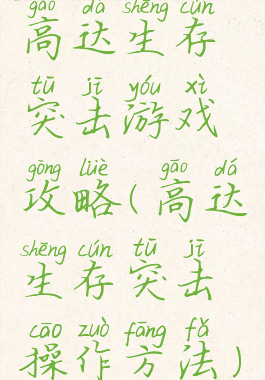 gāo dá shēng cún
高达生存
tū jī yóu xì
突击游戏
gōng lüè gāo dá
攻略(高达
shēng cún tū jī
生存突击
cāo zuò fāng fǎ
操作方法)